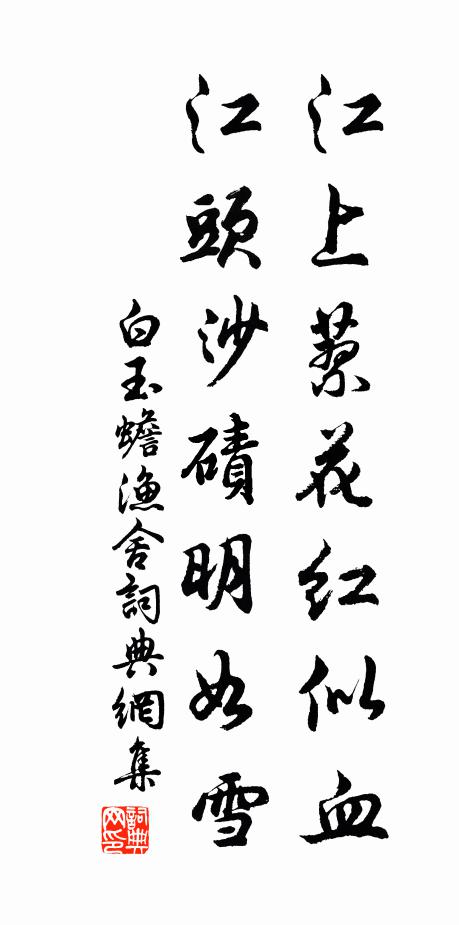 江上蓼花紅似血
江頭沙磧明如雪
白玉蟾漁舍詞典網集
詞典網印